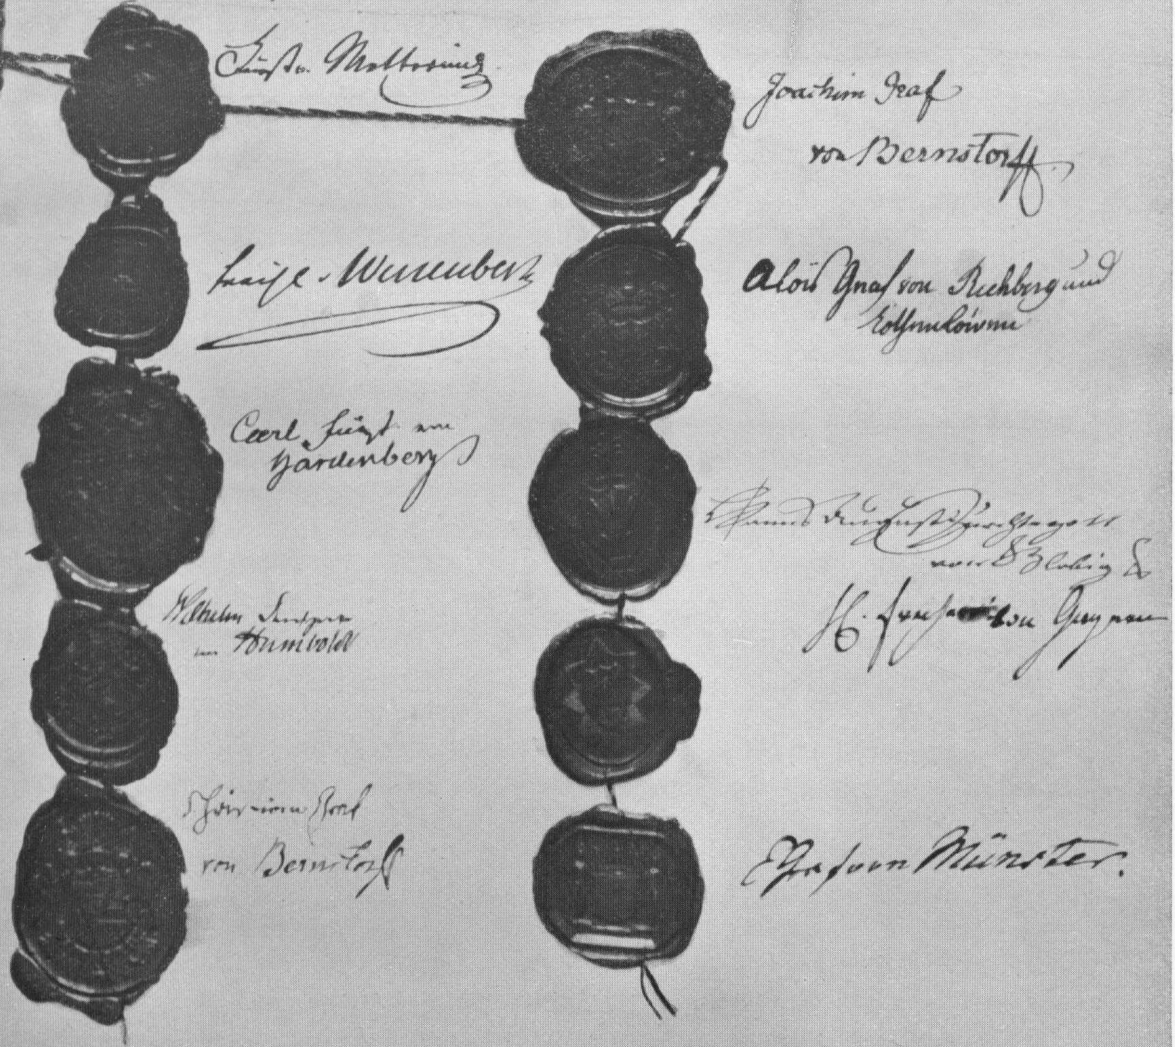 Fürst v. Metternich
Freyh. v. Wessenberg
Carl Fürst von
Hardenberg
Wilhelm Freiherr
von Humboldt
Christian Graf
von Bernstorff
Joachim Graf
von Bernstorff
Alois Graf von Rechberg und
Rothenlöwen
Hanns August Fürchtegott
von Globig
H. Freiherr von Gagern
Graf von Münster.